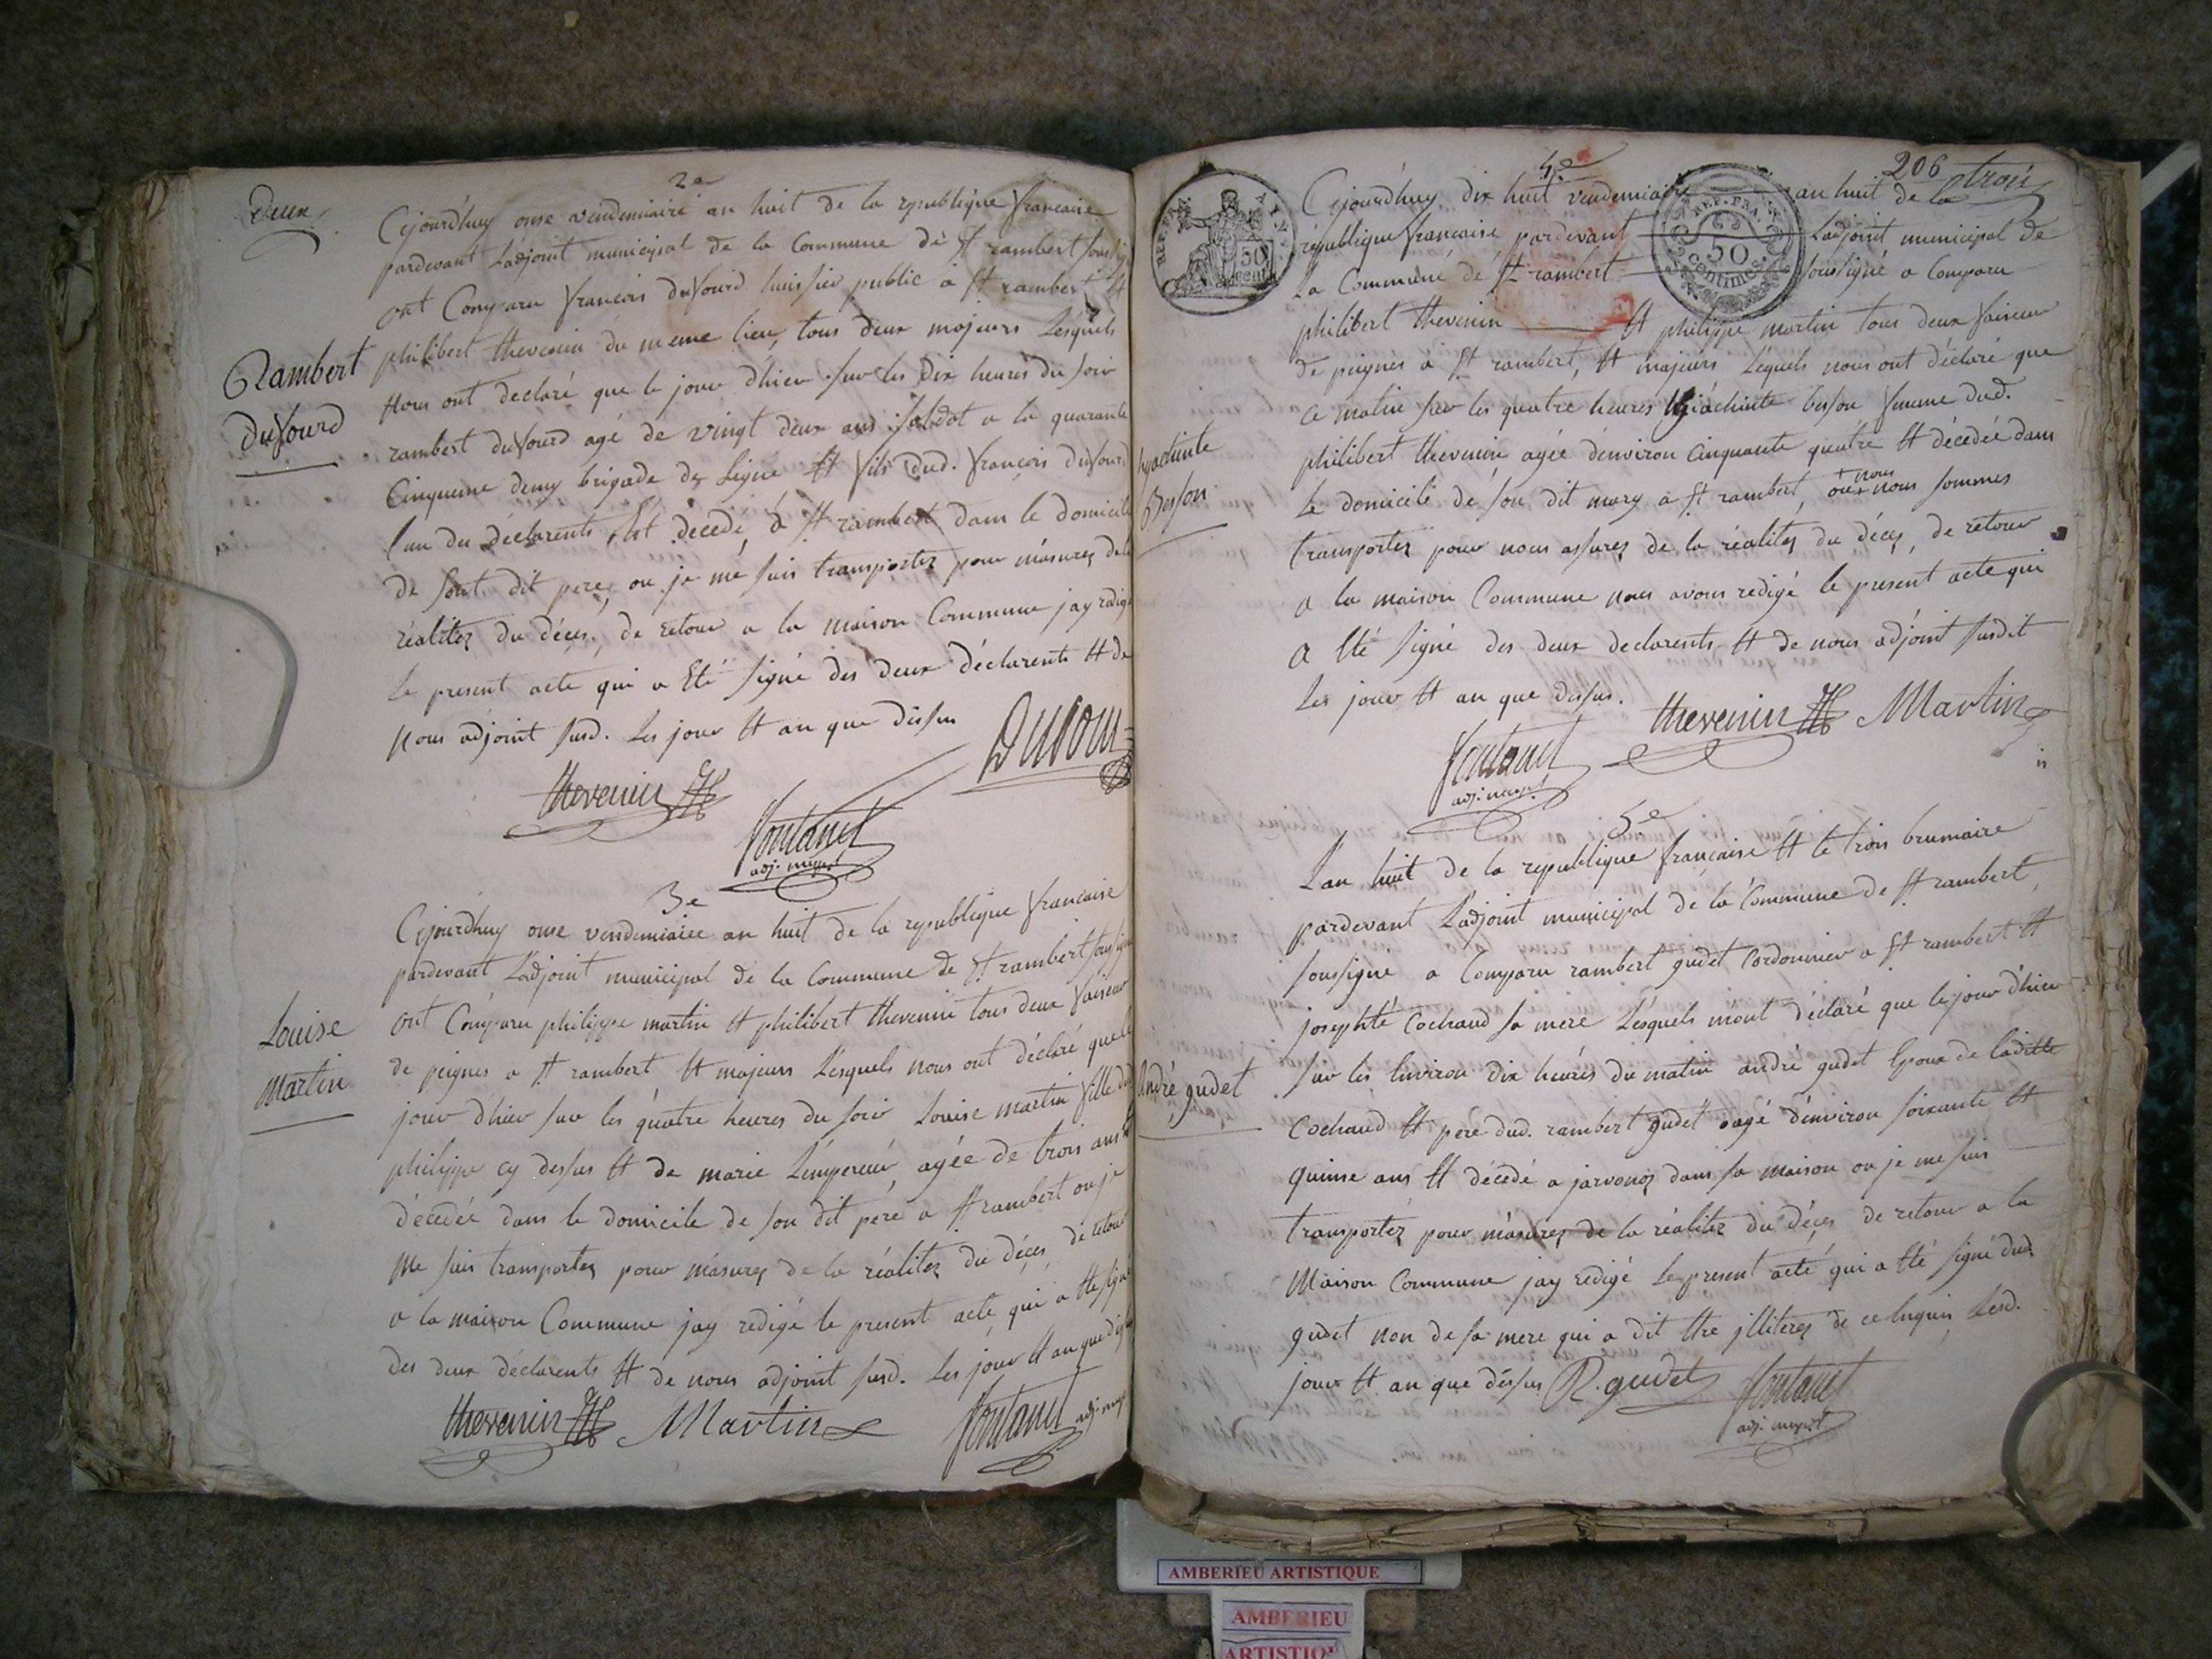 deux
2e
Cejourd'huy onse vendemiaire an huit de la republique francaise
pardevant L'adjoint municipal de la Commune de St rambert sousig
ont Comparu francois dufourd huissier public a St rambert Et
philibert thevenin du meme lieu, tous deux majeurs Lesquels
Nous ont declaré que le jour d'hier sur les dix heures du soir
Rambert
Dufourd
rambert dufourd agé de vingt deux ans soldat a la quarante
Cinquieme demy brigade de Ligne Et fils dud. francois dufourd
l'un des déclarents, Est decedé à St rambert dans le domicile
de sont dit pere, ou je me suis transportez pour m'asurez de la
réalitez du déces, de retour a la maison Commune jay redigé
le present acte qui a Eté signé des deux déclarents Et de
Nous adjoint susd. Les jour Et an que dessus
Dufour
thevenin
fontanel
adj. mupal
3e
Cejourd'huy onse vendemiaire an huit de la republique francaise
pardevant L'adjoint municipal de la Commune de St rambert sousigne
Louise
Martin
ont Comparu philippe martin Et philibert thevenin tous deux faiseur
de peignes a St rambert Et majeurs Lesquels nous ont déclaré que le
jour d'hier sur les quatre heures du soir Louise martin fille dud
philippe cy dessus Et de marie Lempereur, agée de trois ans Et
décedée dans le domicile de son dit pere a St rambert ou je
Me suis transportez pour m'asurez de la réalitez du déces, de retour
a la maison Commune jay redigé le present acte, qui a Eté signé
des deux déclarents Et de nous adjoint susd. Les jour Et an que dessus
thevenin Martin fontanel adj. mup
206
trois
4e
REP. FRA.
50
cent
REP. FRA.
50
centimes
Cejourd'huy dix huit vendemiaire an huit de la
république francaise pardevant L'adjoint municipal de
la Commune de St rambert soussigné a Comparu
philibert thevenin Et philippe martin tous deux faiseur
de peignes a St rambert, Et majeurs Lequels nous ont déclaré que
ce matin sur les quatre heures hyiachinte besson femme dud.
hyachinte
Besson
philibert thevenin agée d'environ Cinquante quatre Et décedée dans
le domicile de son dit mary a St rambert, ou + nous sommes
+ nous
transportez pour nous assurez de la réalitez du déces, de retour
a la maison Commune nous avons redigé le present acte qui
a Eté signé des deux declarents Et de nous adjoint susdit
Les jour Et an que dessus.
thevenin Martin
fontanel
adj. mupal
5e
L'an huit de la republique francaise Et le trois brumaire
pardevant L'adjoint municipal de la Commune de St rambert,
sousigné a Comparu rambert gudet Cordonnier a St rambert Et
josephte Cochaud sa mere Lesquels m'ont déclaré que le jour d'hier
André gudet
sur les Environ dix heures du matin andré gudet Epoux de laditte
Cochaud Et pere dud. rambert gudet agé d'environ soixante Et
quinse ans Et décedé a jarvonoz dans sa maison ou je me suis
transportez pour m'asurez de la réalitez du déces de retour a la
Maison Commune jay redigé Le present acte qui a Eté signé dud
gudet non de sa mere qui a dit Etre jlliterez de ce Enquis, Lesd.
jour Et an que dessus R. gudet fontanel
adj. mupal
AMBERIEU ARTISTIQUE
AMBERIEU
ARTISTIQU